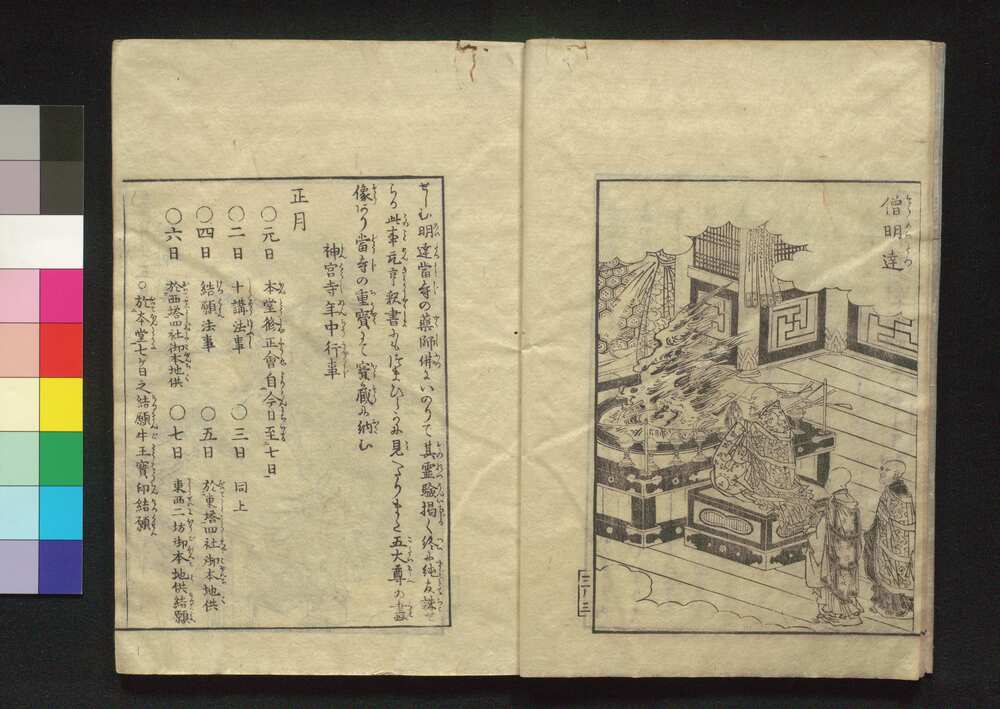 僧明達
二ノ三
せしむ明達當寺の藥師佛にいのりて其霊驗掲く終に純友誅せ
らる此事元亨釈書にも
見へたりまた五大尊の畫
像あり當寺の重寳にて寳蔵に納む
神宮寺年中行事
正月
○元日 本堂修正會自今日至七日
○二日 十講法事 ○三日 同上
○四日 結願法事 ○五日 於東塔四社御本地供
○六日 於西塔四社御本地供 ○七日 東西二坊御本地供結願
○於本堂七ケ日之結願牛王寳印結願